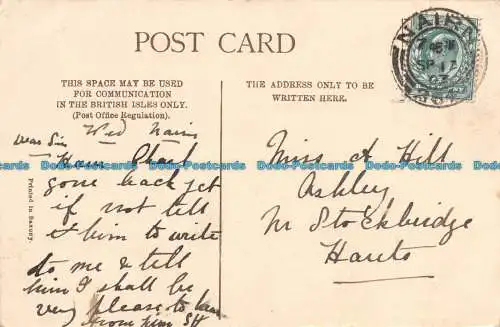 POST CARD
THIS SPACE MAY BE USED
FOR COMMUNICATION
IN THE BRITISH ISLES ONLY.
(Post Office Regulation).
THE ADDRESS ONLY TO BE
WRITTEN HERE.
NAIRN
SP 17
07
Wed Nairn
Dear Sis
Have Charl
gone back yet
if not tell
him to write
to me & tell
him I shall be
very please to hear
from him SH
Miss A Hill
Ashley
Nr Stockbridge
Hants
Printed in Saxony
Dodo-Postcards Dodo-Postcards Dodo-Postcards Dodo-Postcards Dodo-Postcards